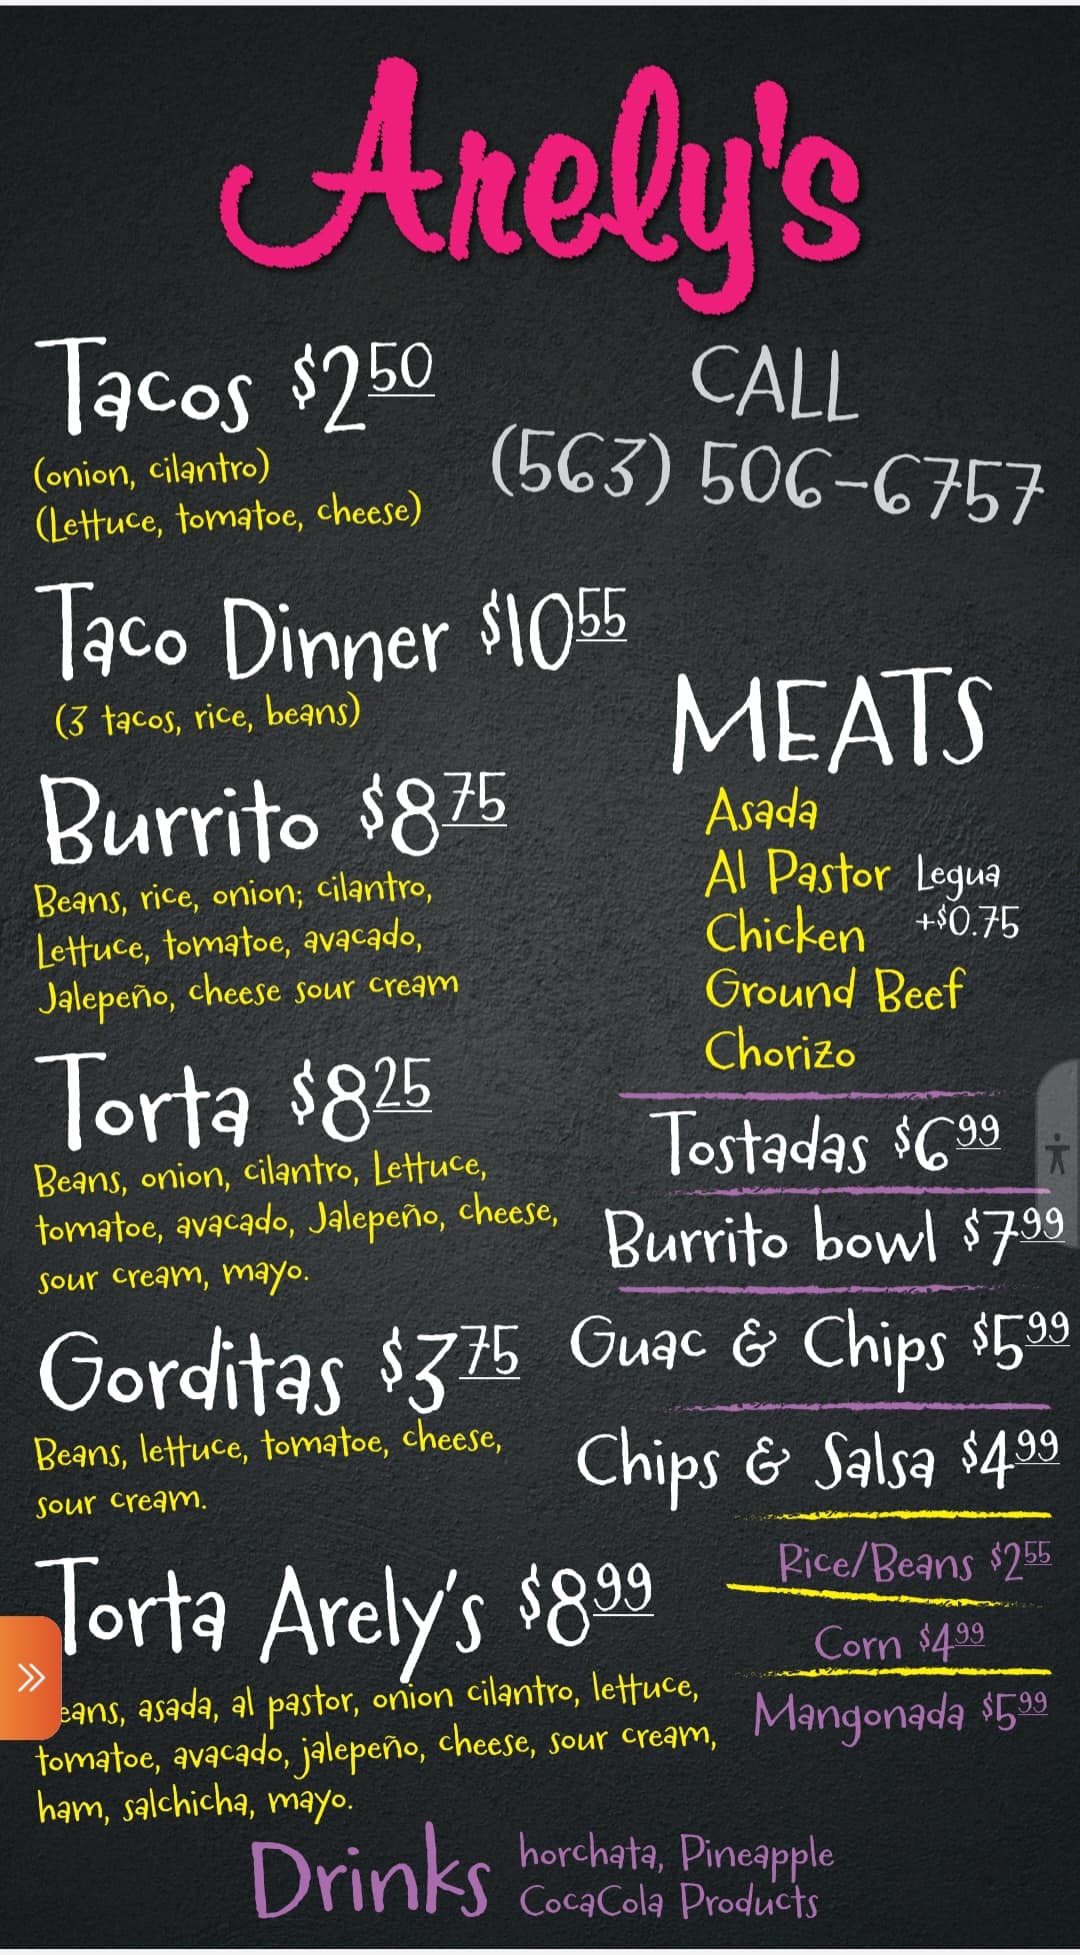 Arely's
Tacos $2.50
(onion, cilantro)
(Lettuce, tomatoe, cheese)
CALL
(563) 506-6757
Taco Dinner $10.55
(3 tacos, rice, beans)
Burrito $8.75
Beans, rice, onion; cilantro,
Lettuce, tomatoe, avacado,
Jalepeño, cheese sour cream
Torta $8.25
Beans, onion, cilantro, Lettuce,
tomatoe, avacado, Jalepeño, cheese,
sour cream, mayo.
Gorditas $3.75
Beans, lettuce, tomatoe, cheese,
sour cream.
Torta Arely's $8.99
eans, asada, al pastor, onion cilantro, lettuce,
tomatoe, avacado, jalepeño, cheese, sour cream,
ham, salchicha, mayo.
MEATS
Asada
Al Pastor
Chicken
Ground Beef
Chorizo
Legua
+$0.75
Tostadas $6.99
Burrito bowl $7.99
Guac & Chips $5.99
Chips & Salsa $4.99
Rice/Beans $2.55
Corn $4.99
Mangonada $5.99
Drinks
horchata, Pineapple
CocaCola Products